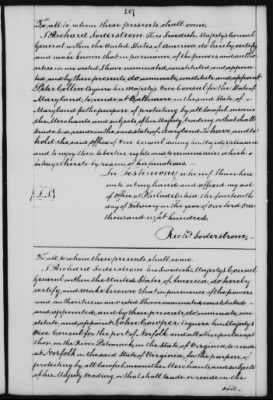 To all to whom these presents shall come.
I Richard Soderstrom His Swedish Majesty's Consul
General within the United States of America do hereby certify
and make known that in pursuance of the powers and autho-
rities in me vested I have nominated constituted and appoin-
ted and by these presents do nominate constitute and appoint
Peter Collin Esquire his Majesty's Vice Consul for the State of
Maryland, to reside at Baltimore in the said State of
Maryland for the purpose of protecting by all lawful means
the Merchants and subjects of his Majesty trading or that shall
trade to or reside in the said state of Maryland. to have and to
hold the said office of Vice Consul during his Majesty's pleasure
and to enjoy those liberties rights and emoluments which
belong thereto by reason of his functions.
In Testimony whereof I have here
unto set my hand and affixed my seal
of office at Philadelphia the fourteenth
day of February in the year of our Lord one
thousand eight hundred.
Richd. Soderstrom,
To all to whom these presents shall come.
I Richard Soderstrom his Swedish Majesty's Consul
General within the United States of America, do hereby
certify and make known that in pursuance of the powers
and authorities in me vested I have nominated constituted
and appointed, and by these presents do nominate con-
stitute and appoint John Cowper Esquire his Majesty's
Vice Consul for the port of Norfolk and all other ports except
those on the River Potomack, in the State of Virginia, to reside
at Norfolk in the said State of Virginia, for the purpose of
protecting by all lawful means the Merchants and subjects
of his Majesty trading or that shall trade or reside in the
said